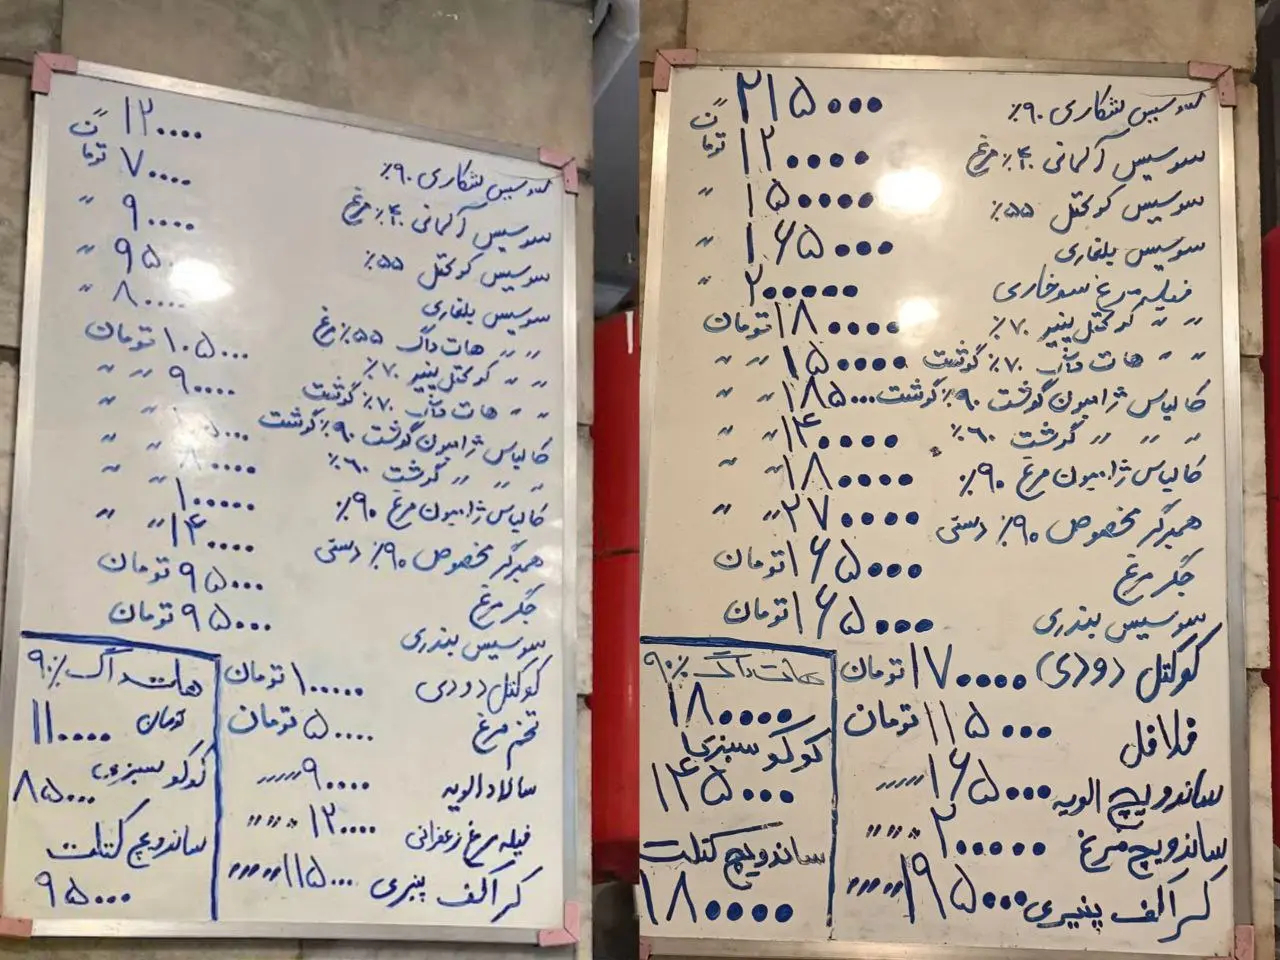 سوسیس شکاری ۹۰٪ ۱۲۰۰۰۰ ت
سوسیس آلمانی ۴۰٪ مرغ ۷۰۰۰۰ تومان
سوسیس کوکتل ۵۵٪ ۹۰۰۰۰ "
سوسیس بلغاری ۹۵۰۰۰ "
" " هات داگ ۵۵٪ مرغ ۸۰۰۰۰ "
" " کوکتل پنیر ۷۰٪ ۱۰۵۰۰۰ تومان
" " هات داگ ۷۰٪ گوشت ۹۰۰۰۰ " "
کالباس ژامبون گوشت ۹۰٪ گوشت
" " " گوشت ۶۰٪ ۸۰۰۰۰ " "
کالباس ژامبون مرغ ۹۰٪ ۱۰۰۰۰۰ " "
همبرگر مخصوص ۹۰٪ دستی ۱۴۰۰۰۰ " "
جگر مرغ ۹۵۰۰۰ تومان
سوسیس بندری ۹۵۰۰۰ تومان
کوکتل دودی ۱۰۰۰۰۰ تومان
تخم مرغ ۵۰۰۰۰ تومان
سالاد الویه ۹۰۰۰۰ """"
فیله مرغ زعفرانی ۱۲۰۰۰۰ """
کراکف پنیری ۱۱۵۰۰۰ """"
هات داگ ۹۰٪
۱۱۰۰۰۰ تومان
کوکو سبزی
۸۵۰۰۰
ساندویچ کتلت
۹۵۰۰۰
سوسیس شکاری ۹۰٪ ۲۱۵۰۰۰ ت
سوسیس آلمانی ۴۰٪ مرغ ۱۲۰۰۰۰ تومان
سوسیس کوکتل ۵۵٪ ۱۵۰۰۰۰ "
سوسیس بلغاری ۱۶۵۰۰۰ "
فیله مرغ سوخاری ۲۰۰۰۰۰ "
" " کوکتل پنیر ۷۰٪ ۱۸۰۰۰۰ تومان
" " هات داگ ۷۰٪ گوشت ۱۵۰۰۰۰ " "
کالباس ژامبون گوشت ۹۰٪ گوشت ۱۸۵۰۰۰ " "
" " " گوشت ۶۰٪ ۱۴۰۰۰۰ " "
کالباس ژامبون مرغ ۹۰٪ ۱۸۰۰۰۰ " "
همبرگر مخصوص ۹۰٪ دستی ۲۷۰۰۰۰ " "
جگر مرغ ۱۶۵۰۰۰ تومان
سوسیس بندری ۱۶۵۰۰۰ تومان
کوکتل دودی ۱۷۰۰۰۰ تومان
فلافل ۱۱۵۰۰۰ تومان
ساندویچ الویه ۱۶۵۰۰۰ """"
ساندویچ مرغ ۲۰۰۰۰۰ """
کراکف پنیری ۱۹۵۰۰۰ """"
هات داگ ۹۰٪
۱۸۰۰۰۰
کوکو سبزی
۱۴۵۰۰۰
ساندویچ کتلت
۱۸۰۰۰۰